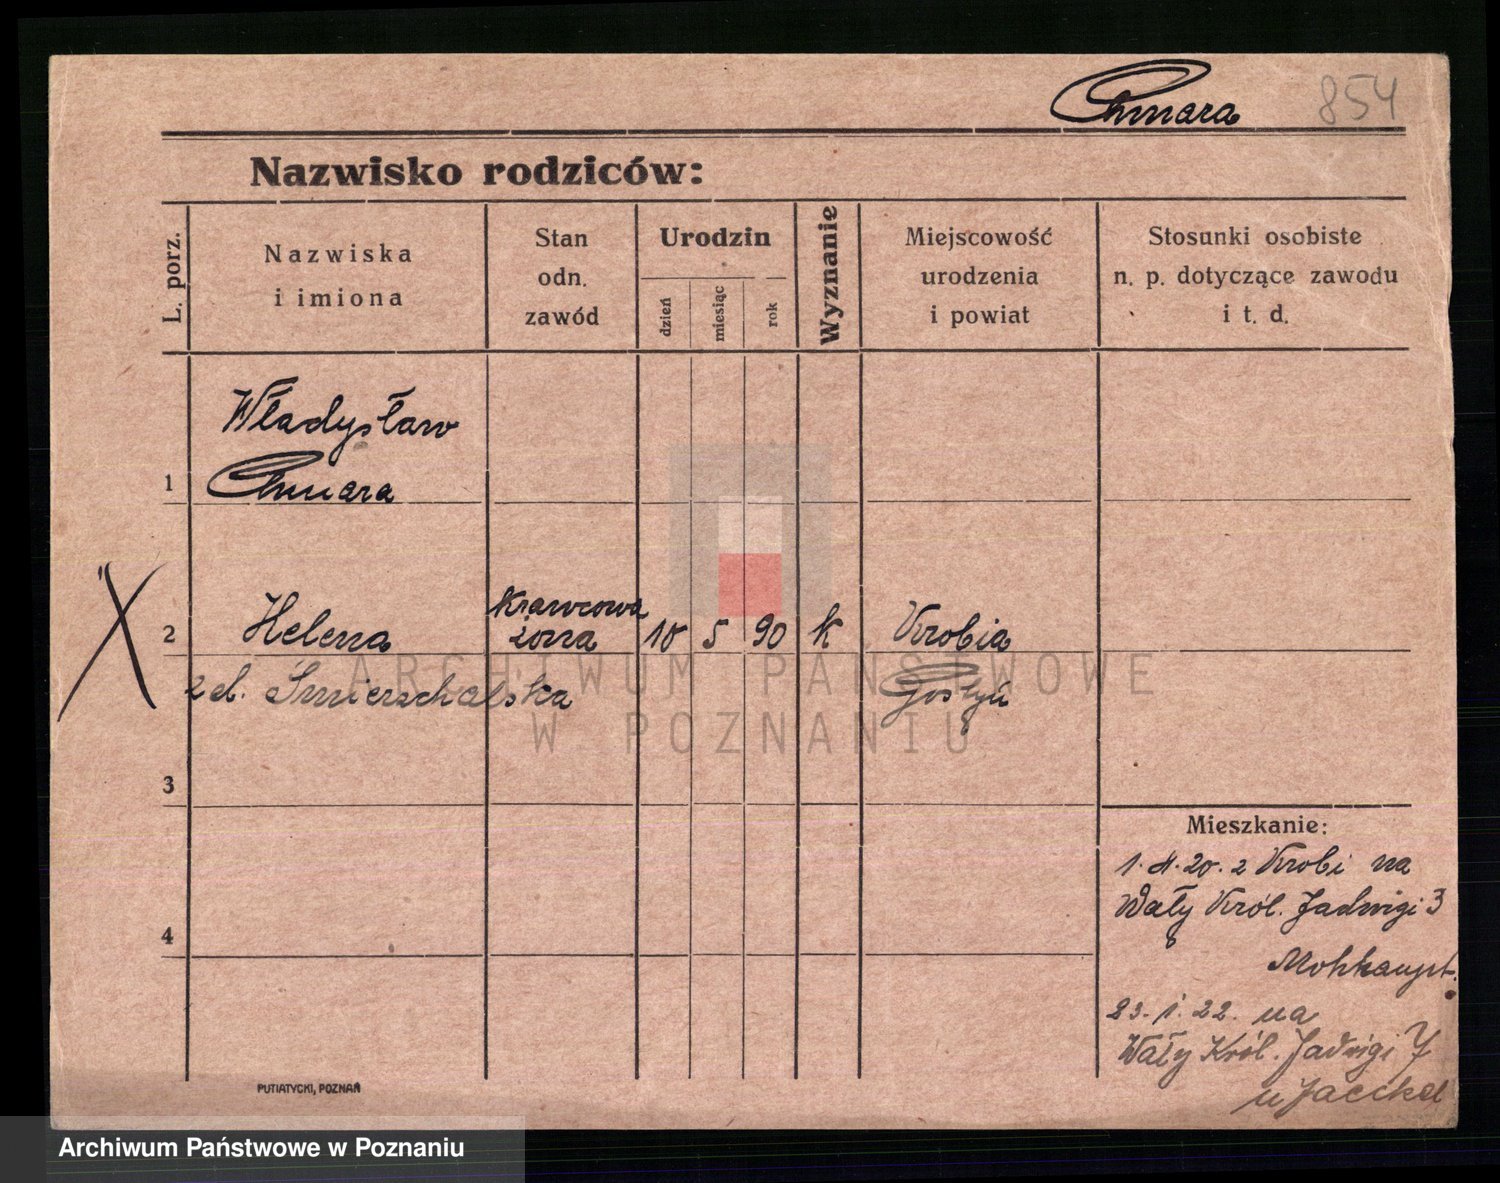 Chmara 854
Nazwisko rodziców:
L. porz.
Nazwiska
i imiona
Stan
odn.
zawód
Urodzin
dzień
miesiąc
rok
Wyznanie
Miejscowość
urodzenia
i powiat
Stosunki osobiste
n. p. dotyczące zawodu
i t. d.
Władysław
1 Chmara
Krawcowa
2 Helena żona 10 5 90 k Krobia
zd. Śmierzchalska Gostyń
3
4
Mieszkanie:
1. 4. 20. z Krobi na
Wały Król. Jadwigi 3
Mohhaupt.
23. 1. 22. na
Wały Król. Jadwigi 7
u Jaeckel
PUTIATYCKI, POZNAŃ
ARCHIWUM PAŃSTWOWE
W POZNANIU
Archiwum Państwowe w Poznaniu